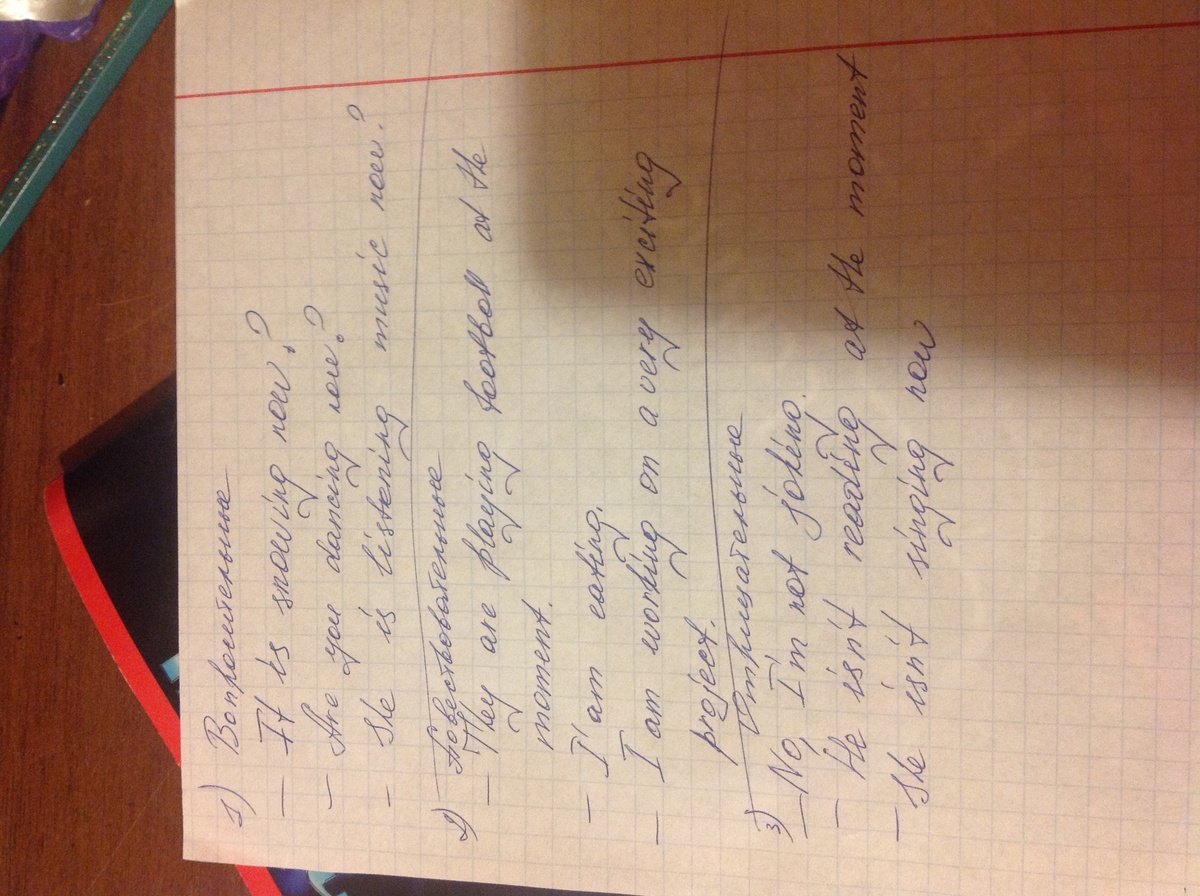 1) Вопросительные
— It is snowing now?
— Are you dancing now?
— She is listening music now?
2) Повествовательные
— They are playing football at the
moment.
— I'am eating.
— I am working on a very exciting
project.
3) Отрицательные
— No, I'm not joking.
— He isn't reading at the moment
— She isn't singing now